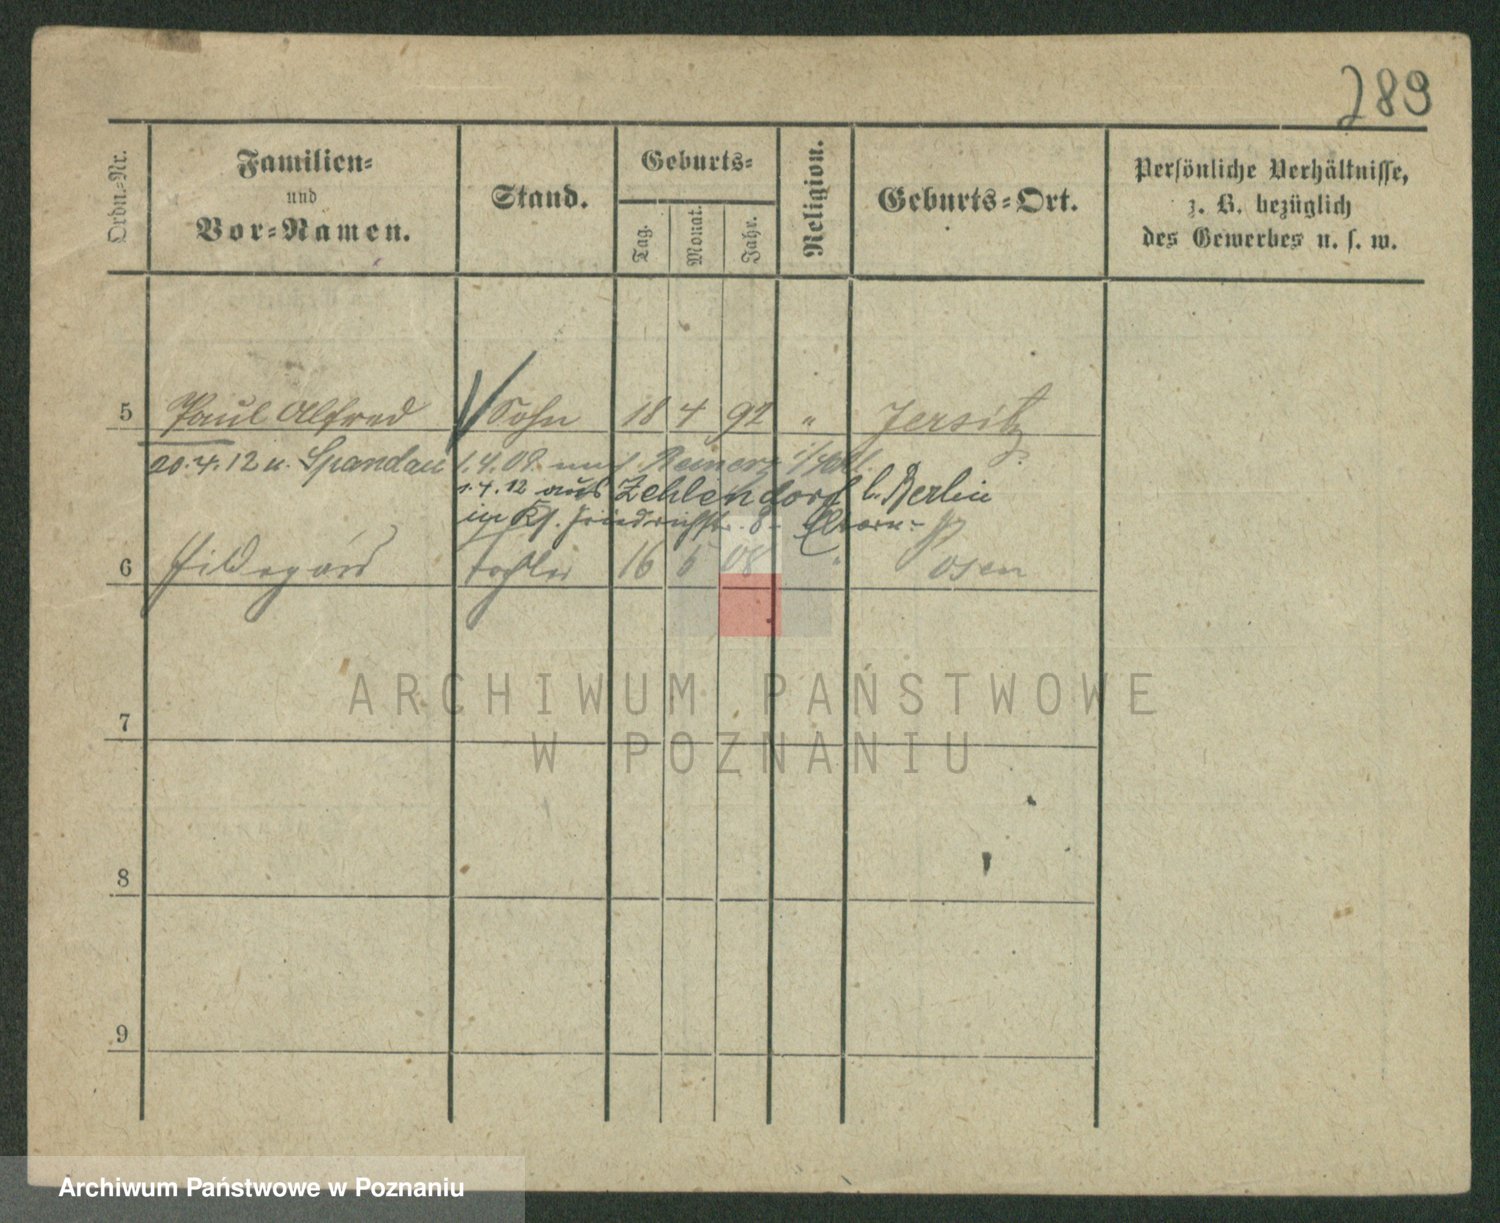 289
Ordn.-Nr.
Familien-
und
Vor-Namen.
Stand.
Geburts-
Tag.
Monat.
Jahr.
Religion.
Geburts-Ort.
Persönliche Verhältnisse,
z. B. bezüglich
des Gewerbes u. s. w.
5 Paul Alfred Sohn 18 4 92 " Jersitz
20.4.12 n. Spandau 1.4.09. nach Reinerz
1.4.12 aus Zehlendorf b. Berlin
in Friedrichstr. 8. Eltern
6 Hildegard Tochter 16 5 08 " Posen
7
8
9
ARCHIWUM PAŃSTWOWE
W POZNANIU
Archiwum Państwowe w Poznaniu